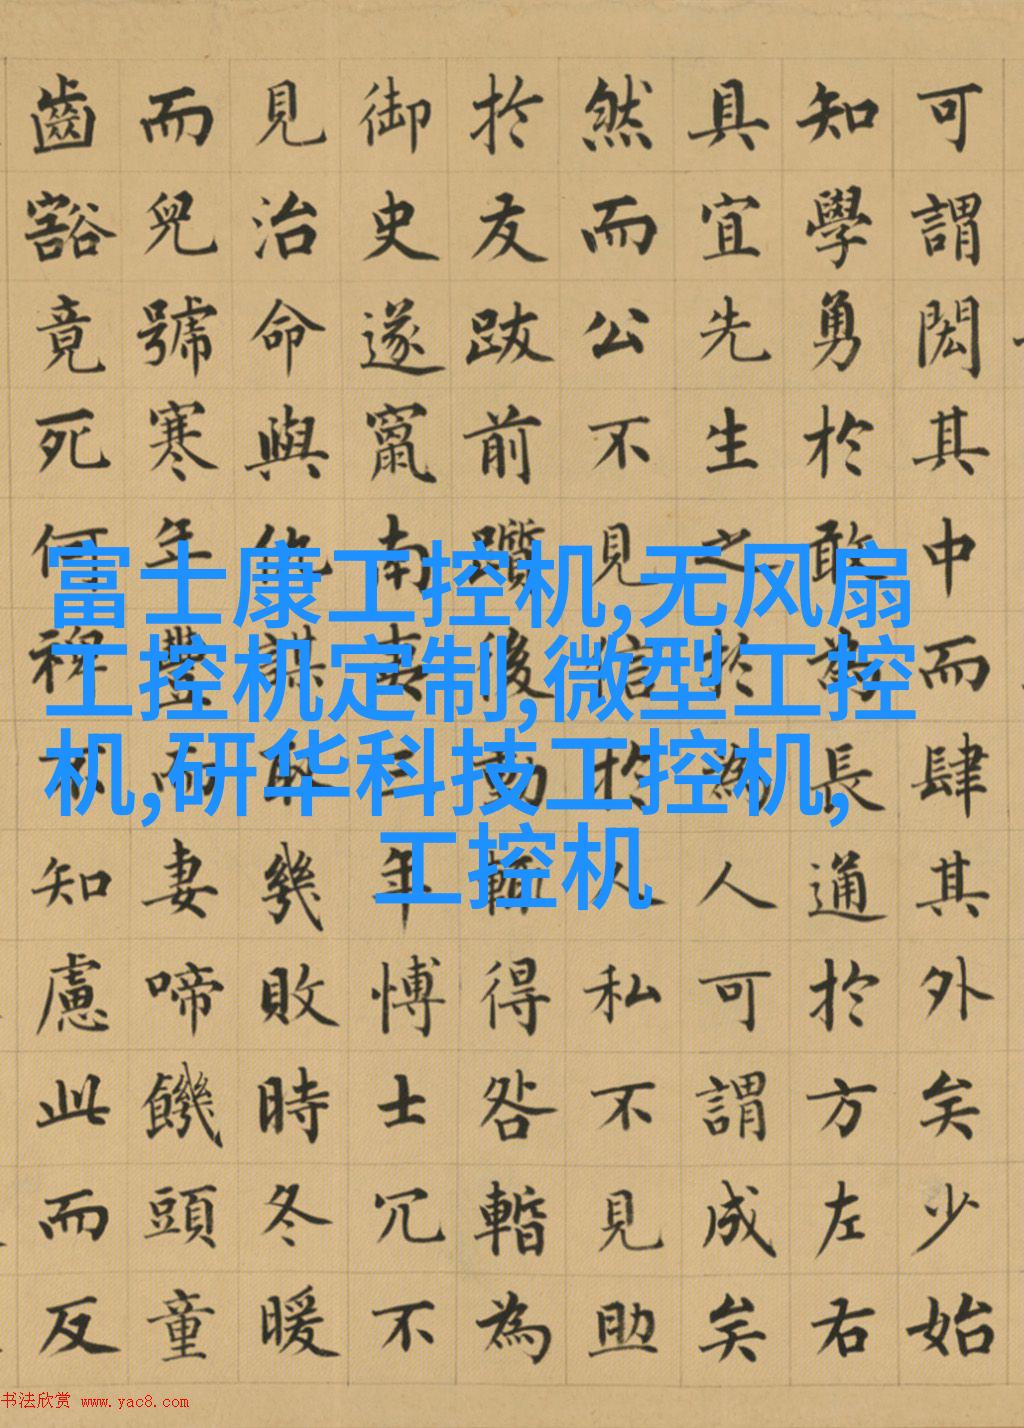 可謂閎其中而肆其外矣少始
知學勇於敢為長通於方左右
具宜先生之於為人可謂成矣
然而公不見信於人私不見助
於友跋前躓後動輒得咎暫為
御史遂竄南夷三年博士冗不
見治命與仇謀取敗幾時冬暖
而兒號寒年豐而妻啼饑頭童
齒豁竟死何裨不知慮此而反
富士康工控机,无风扇
工控机定制,微型工控
机,研华科技工控机,
工控机
书法欣赏 www.yac8.com